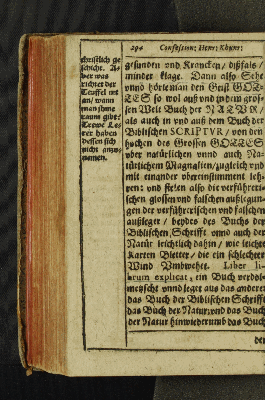 294 Confession; Henr: Khunr:
christlich ge
schicht. A-
ber was
richtet der
Teuffel nit
an/ wann
man ihme
raum gibt?
Trewe Le-
rer haben
dessen sich
nicht anzu-
nemen.
gesunden und Krancken/ dißfals/
minder klage. Dann also Sehe
unnd höret man den Geist GOT-
TES so wol auß und in dem gros-
sen Welt Buch der NATUR/
als auch in und auß dem Buch der
Biblischen SCRIPTUR/ von den
hochen des Grossen GOTTES
uber natürlichen unnd auch Na-
türlichem Magnalien/ zugleich und
mit einander ubereinstimment leh-
ren: und stossen also die verführeri-
schen glossen und falschen außlegun-
gen der verführerischen und falschen
außleger/ beydes des Buchs der
Biblischen Schrifft unnd auch der
Natur leichtlich dahin/ wie leichte
Karten Bletter/ die ein schlechter
Wind Umbwehet. Liber li-
brum explicat, ein Buch verdol-
metscht unnd leget aus das andere:
das Buch der Biblischen Schrifft
das Buch der Natur; und das Buch
der Natur hinwiederumb das Buch
der